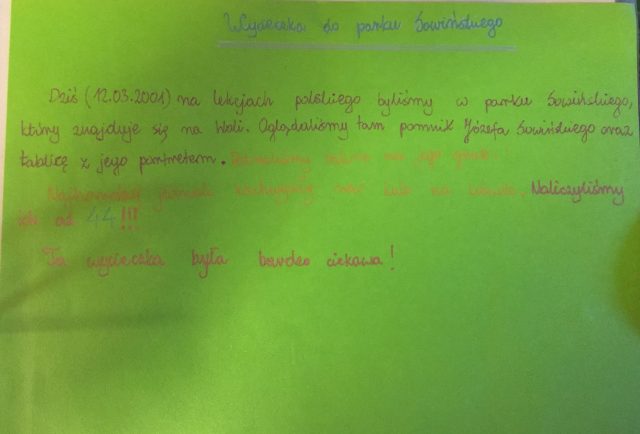 Wycieczka do parku Sowińskiego
Dziś (12.03.2001) na lekcjach polskiego byliśmy w parku Sowińskiego,
który znajduje się na Woli. Oglądaliśmy tam pomnik Józefa Sowińskiego oraz
tablicę z jego portretem. na jego
Najbardziej jednak nas na Naliczyliśmy
ich aż 44!!!
Ta wycieczka była bardzo ciekawa!